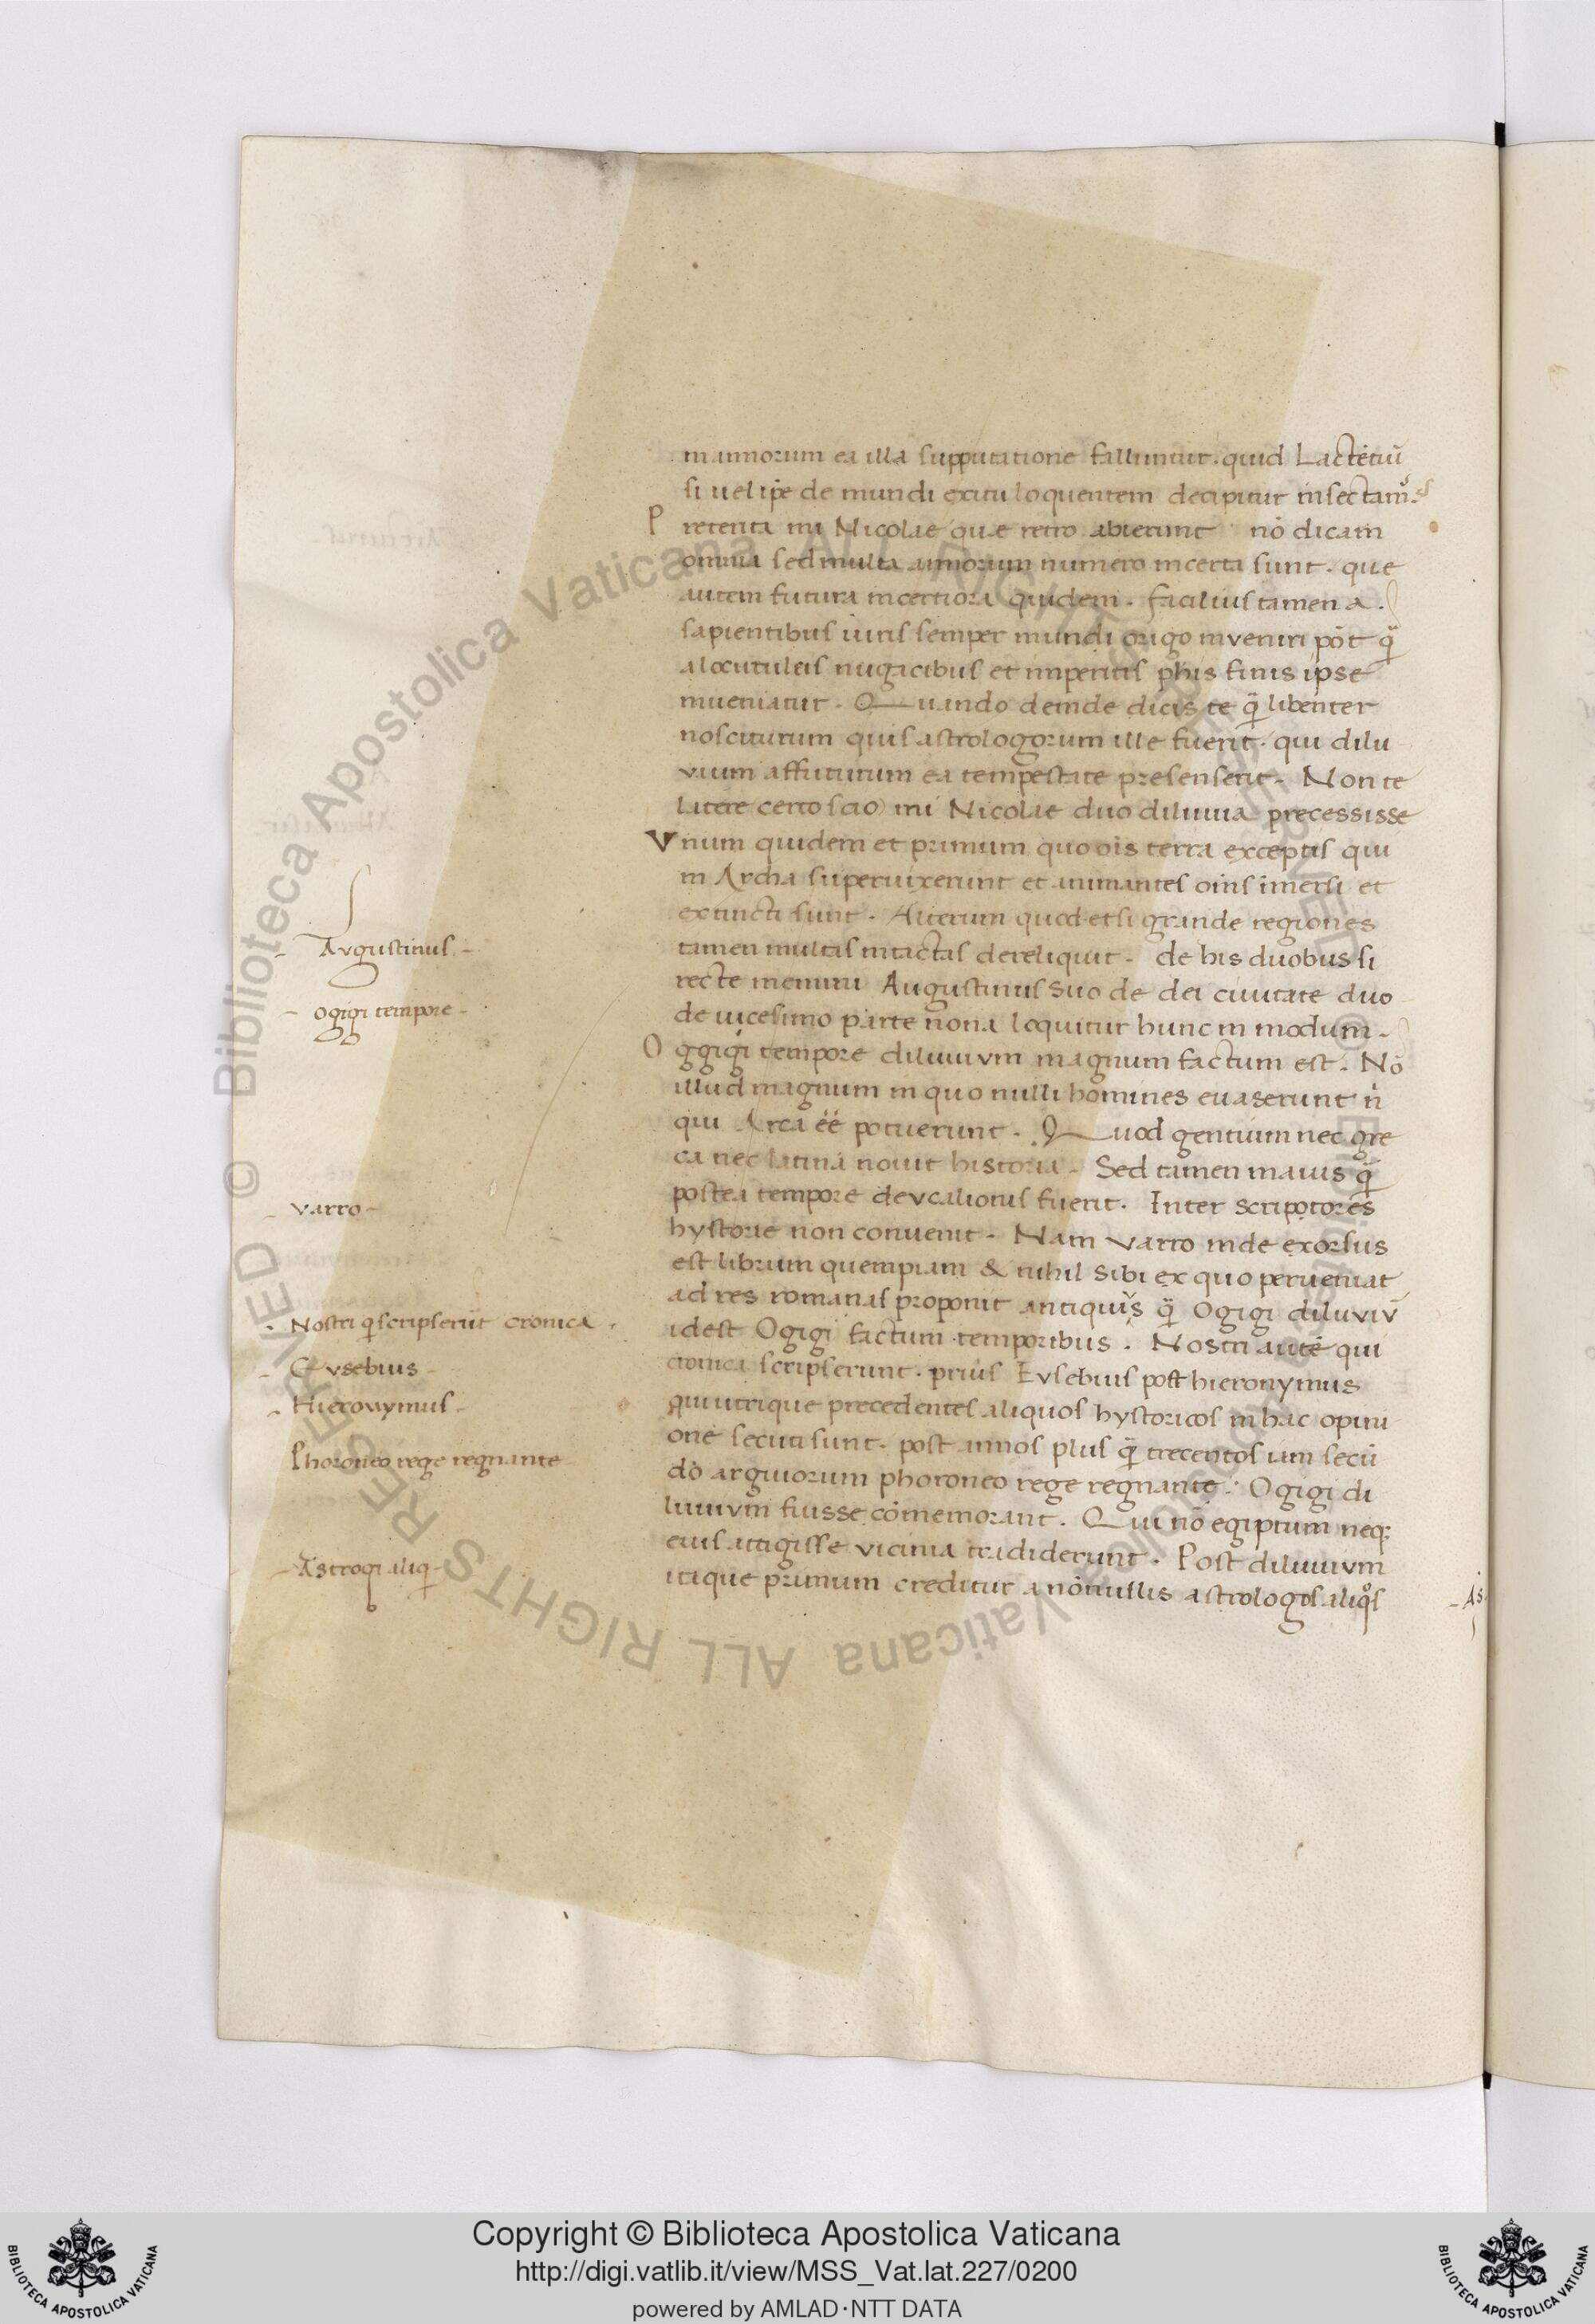 in annorum ea illa supputatione falluntur. quid Lactētiū
si uel ip̄e de mundi exitu loquentem decipitur insectamꝰ.
P retenta mi Nicolae que retro abierunt nō dicam
omnia sed multa annorum numero incerta sunt. que
autem futura incertiora quidem. facilius tamen a
sapientibus iuris semper mundi origo inveniri pōt q̄
a locutuleis nugacibus et imperitis phis finis ipse
inueniatur. Quando deinde dicis te q̄ libenter
nosciturum quis astrologorum ille fuerit. qui dilu
vium affuturum ea tempestate presenserit. Non te
latere certo scio mi Nicolae duo diluuia precessisse
Vnum quidem et primum quo oīs terra exceptis qui
in Archa superuixerunt et animantes oīns īmersi et
extincti sunt. Alterum quod etsi grande regiones
tamen multas intactas dereliquit. de his duobus si
recte memini Augustinus suo de dei ciuitate duo
de uicesimo parte nona loquitur hunc in modum.
O ggigi tempore diluuivm magnum factum est. Nō
illud magnum in quo nulli homines evaserunt n̄
qui Arca ēē potuerunt. Quod gentium nec gre
ca nec latina nouit historia. Sed tamen maius q̄
postea tempore devcalionis fuerit. Inter scriptores
hystorie non convenit. Nam varro inde exorsus
est librum quempiam & nihil sibi ex quo perueniat
ad res romanas proponit antiquiꝰs q̄ Ogigi diluviv̄
idest Ogigi factum temporibus. Nostri autē qui
cronica scripserunt. prius Evsebius post hieronymus
qui utrique precedentes aliquos hystoricos in hac opini
one secuti sunt. post annos plus q̄ trecentos iam secū
dō argiuorum phoroneo rege regnante. Ogigi di
luuivm fuisse cōmemorant. Qui nō egiptum neq;
eius attigisse vicinia tradiderunt. Post diluuivm
itaque primum creditur a nōnullis astrologos aliq̊s
- Avgustinus -
- Ogigi tempore -
- varro -
- Nostri q̄ scripserūt cronica.
- Evsebius -
- Hieronymus -
Phoroneo rege regnante
- Astrogi aliq
- As
Copyright © Biblioteca Apostolica Vaticana
http://digi.vatlib.it/view/MSS_Vat.lat.227/0200
powered by AMLAD·NTT DATA
BIBLIOTECA APOSTOLICA VATICANA
BIBLIOTECA APOSTOLICA VATICANA
© Biblioteca Apostolica Vaticana ALL RIGHTS RESERVED
© Biblioteca Apostolica Vaticana ALL RIGHTS RESERVED